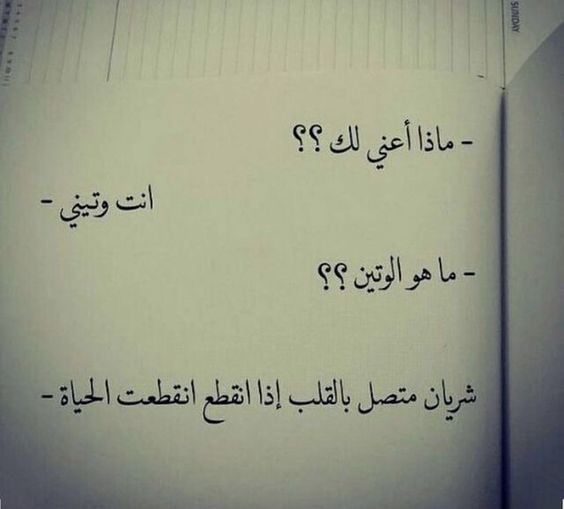 SUNDAY
- ماذا أعني لك ؟؟
انت وتيني -
- ما هو الوتين ؟؟
شريان متصل بالقلب إذا انقطع انقطعت الحياة -